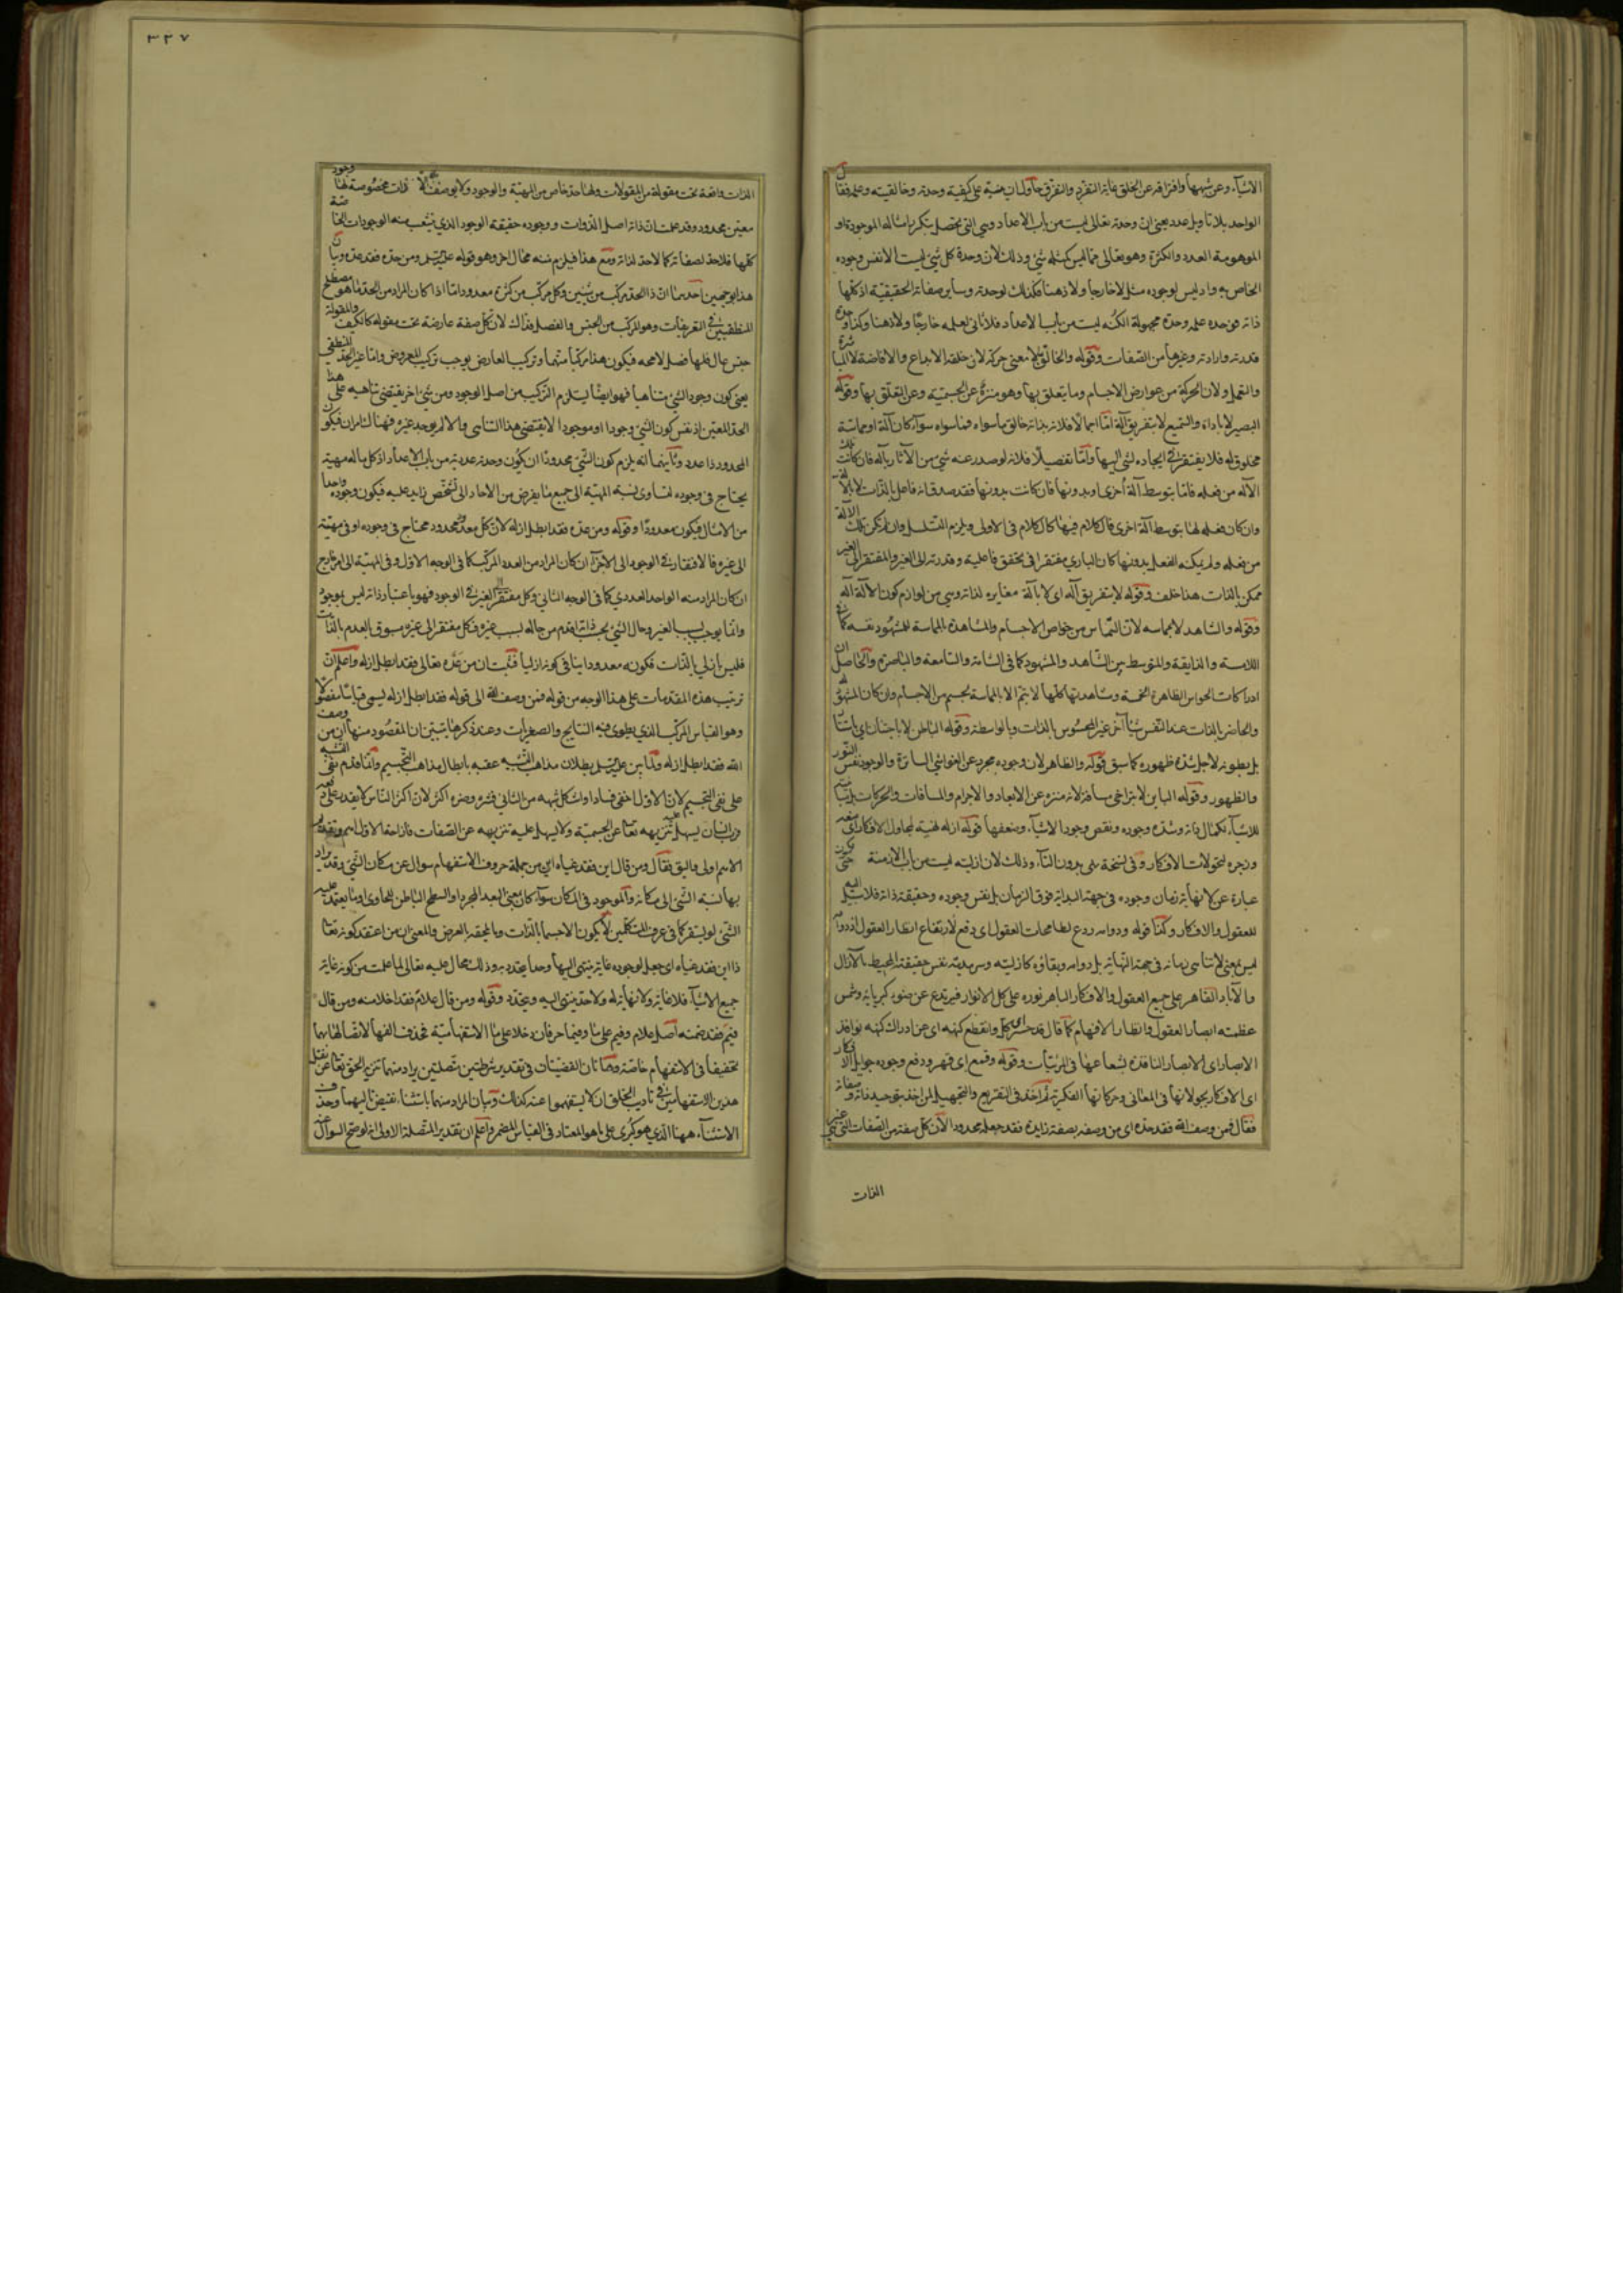 ٣٣٧
الاشيآء وعن شبهها وافتراقه عن الخلق غاية التفرد والتفرق حاول ان ينبه على كيفية وحدته وخالقيته وعلمه فقال
الواحد بلا تاويل عدد يعنى ان وحدته تعالى ليست من باب الاعداد وهى التى تحصل بتكرر امثاله الموجودة او
الموهومة العدد والكثرة وهو تعالى مما ليس كمثله شئ وذلك لان وحدة كل شئ ليست الا نفس وجوده
الخاص به واذ ليس لوجوده مثل لا خارجا ولا ذهنا فكذلك لوحدته وساير صفاته الحقيقية اذ كلها
ذاته فوحدة علمه وحدة مجهولة الكنه ليست من باب الاعداد فلا ثانى لعلمه خارجا ولا ذهنا وكذا وحدة
قدرته وارادته وغيرها من الصفات وقوله والخالق لا بمعنى حركة لان خلقه الابداع والافاضة لا المباشرة
والتعمل ولان الحركة من عوارض الاجسام وما يتعلق بها وهو منزه عن الجسمية وعن التعلق بها وقوله
البصير لا باداة والسميع لا بتفريق آلة اما اجمالا فلانه بذاته خالق ما سواه فما سواه سوآء كان آلة او مماسة
مخلوق له فلا يفتقر فى ايجاده لشئ اليها واما تفصيلا فلانه لو صدر عنه شئ من الآثار بآلة فان كانت تلك
الآلة من فعله فاما بتوسط آلة اخرى او بدونها فان كانت بدونها فقد صدق انه فاعل بالذات لا بالآلة
وان كان فعله لها بتوسط آلة اخرى فالكلام فيها كالكلام فى الاولى ويلزم التسلسل وان لم يكن تلك الآلة
من فعله ولم يمكنه الفعل بدونها كان البارى مفتقرا فى تحقق فاعليته وقدرته الى الغير والمفتقر الى الغير
ممكن بالذات هذا خلف وقوله لا بتفريق آلة اى لا بآلة مغايرة لذاته وهى من لوازم كون الآلة آلة
وقوله والشاهد لا بمماسة لان التماس من خواص الاجسام والمشاهدة المماسة للمشهود نفسه كما فى
اللامسة والذايقة والمتوسط بين الشاهد والمشهود كما فى الشامة والسامعة والباصرة والحاصل ان
ادراكات الحواس الظاهرة الخمسة ومشاهدتها كلها لا يتم الا بالمماسة لجسم من الاجسام وان كان المشهود له
والحاضر بالذات عند النفس شيئا آخر غير المحسوس بالذات وبالواسطة وقوله الباطن لا باجتنان اى باستتار
بل بطونه لاجل شدة ظهوره كما سبق قوله والظاهر لان وجوده مجرد عن الغواشى الساترة والوجود نفس النور
والظهور وقوله الباين لا بتراخى مسافة لانه منزه عن الابعاد والاجرام والمسافات والحركات بل مباينته
للاشيآء بكمال ذاته وشدة وجوده ونقص وجود الاشيآء وضعفها قوله ازله نهية لمجاول الافكار اى منع
وزجره لتحولات الافكار وفى نسخة نهى بدون التآء وذلك لان ازليته ليست من باب الازمنة حتى يكون
عبارة عن لا نهاية زمان وجوده فى جهة البداية فوق الزمان بل نفس وجوده وحقيقة ذاته فلا سبيل اليه
للعقول والافكار وكذا قوله ودوامه ردع لطامحات العقول اى دفع لارتفاع انظار العقول اذ دوامه
ليس بمعنى لا تناهى زمانه فى جهة النهاية بل دوامه وبقاؤه كازليته وسرمديته نفس حقيقته المحيط بالآزال
والآباد القاهر على جميع العقول والافكار الباهر نوره على كل الانوار فيرتدع عن ضوء كبريائه وشمس
عظمته ابصار العقول وانظار الافهام كما قال قد حسر اى كلّ وانقطع كنهه اى عن ادراك كنهه نوافذ
الابصار اى الابصار النافذة بشعاعها فى المرئيات وقوله وقمع اى قهر ودفع وجوده جوايل الافكار
اى الافكار بجولانها فى المعانى وحركاتها الفكرية ثم اخذ فى التفريع والتجهيل لمن اخذ بتوحيد ذاته وصفاته
فقال فمن وصف الله فقد حده اى من وصفه بصفة زايدة فقد جعله محدودا لان كل صفة من الصفات التى هى غير
الذات
الذات واقعة تحت مقولة من المقولات ولها حد خاص من المهية والوجود ولا يوصف بها الا ذات مخصوصة لها وجود
معين محدود وقد علمت ان ذاته اصل الذوات ووجوده حقيقة الوجود الذى ينشعب منه الوجودات الخاصة
كلها فلا حد لصفاته كما لا حد لذاته ومع هذا فيلزم منه محال آخر وهو قوله عليه السلم ومن حده فقد عده وبيان
هذا بوجهين احدهما ان ذا الحد مركب من شيئين وكل مركب من كثرة معدود اما اذا كان المراد من الحد ما هو مصطلح
المنطقيين فى التعريفات وهو المركب من الجنس والفصل فذلك لان كل صفة عارضة تحت مقولة كالكيف والمقولة
جنس عال فلها فصل لا محه فيكون هذا مركبا منهما وتركيب العارض يوجب تركيب المعروض واما غير الحد المنطقى
يعنى كون وجود الشئ متناهيا فهو ايضا يستلزم التركيب من اصل الوجود ومن شئ آخر يقتضى تناهيه على هذا
الحد المعين اذ نفس كون الشئ وجودا او موجودا لا يقتضى هذا التناهى والا لم يوجد غيره فهناك امران فيكون
المحدود ذا عدد وثانيهما انه يلزم كون الشئ محدودا ان يكون وحدته عددية من باب الاعداد اذ كل ماله مهية
يحتاج فى وجوده لتساوى نسبة المهية الى جميع ما يفرض من الاحاد الى تشخص زايد عليه فيكون وجوده واحدا
من الامثال فيكون معدودا وقوله ومن عده فقد ابطل ازله لان كل معدود محدود محتاج فى وجوده او فى مهيته
الى غيره فالافتقار فى الوجود الى الاجزآء ان كان المراد من العدد المركب كما فى الوجه الاول وفى المهية الى امر خارج
ان كان المراد منه الواحد العددى كما فى الوجه الثانى وكل مفتقر الى الغير فى الوجود فهو باعتبار ذاته ليس بموجود
وانما يوجب بسبب الغير وحال الشئ بحسب ذاته اقدم من حاله بسبب غيره فكل مفتقر الى غيره مسبوق بالعدم بالذات
فليس بازلى بالذات فكونه معدودا ينافى كونه ازليا فثبت ان من عده تعالى فقد ابطل ازله واعلم ان
ترتيب هذه المقدمات على هذا الوجه من قوله فمن وصف الله الى قوله فقد ابطل ازله يسمى قياسا مفصولا
وهو القياس المركب الذى يطوى فيه النتايج والصغريات وعند ذكرها يتبين ان المقصود منها ان من وصف
الله فقد ابطل ازله ولما بين عليه السلم بطلان مذاهب التشبيه عقبه بابطال مذاهب التجسيم وانما قدم نفى التشبيه
على نفى التجسيم لان الاول اخفى فسادا واشكل شبهه من الثانى فشره وضره اكثر لان اكثر الناس لا يقدر على
الانسان يسهل عليه تنزيهه تعا عن الجسمية ولا يسهل عليه تنزيهه عن الصفات فازاحة الاول اهم وتقديم
الاهم اولى واليق فقال ومن قال اين فقد غياه اين من جملة حروف الاستفهام سوال عن مكان الشئ وقد يراد
بها نسبة الشئ الى مكانه والموجود فى المكان سوآء كان بمعنى البعد المجرد او السطح الباطن للحاوى او ما يعتمد عليه
الشئ لو يستقر كما فى عرف المتكلمين لا يكون الا جسما بالذات وما يلحقه بالعرض والمعنى ان من اعتقد كونه تعا
ذا اين فقد غياه اى جعل لوجوده غاية ينتهى اليها وحدا يتحدد به وذلك محال عليه تعالى لما علمت من كونه غاية
جميع الاشيآء فلا غاية ولا نهاية له ولا حد ينتهى اليه ويتحدد وقوله ومن قال علام فقد اخلا منه ومن قال
فيم فقد ضمنه اصل علام وفيم على ما وفيما حرفان دخلا على ما الاستفهامية فحذف الفها لاتصالها بهما
تخفيفا فى الاستفهام خاصة وهاتان القضيتان فى تقدير شرطيتين متصلتين يراد منهما تنزيه الحق تعا عن مثل
هذين الاستفهامين فى تاديب الخلق ان لا يستفهموا عنه كذلك وبيان المراد منهما باستثناء نقيض تاليهما وحذف
الاستثناء ههنا الذى هو كبرى على ما هو المعتاد فى القياس المضمر واعلم ان تقدير المتصلة الاولى انه لو صح السوال عنه